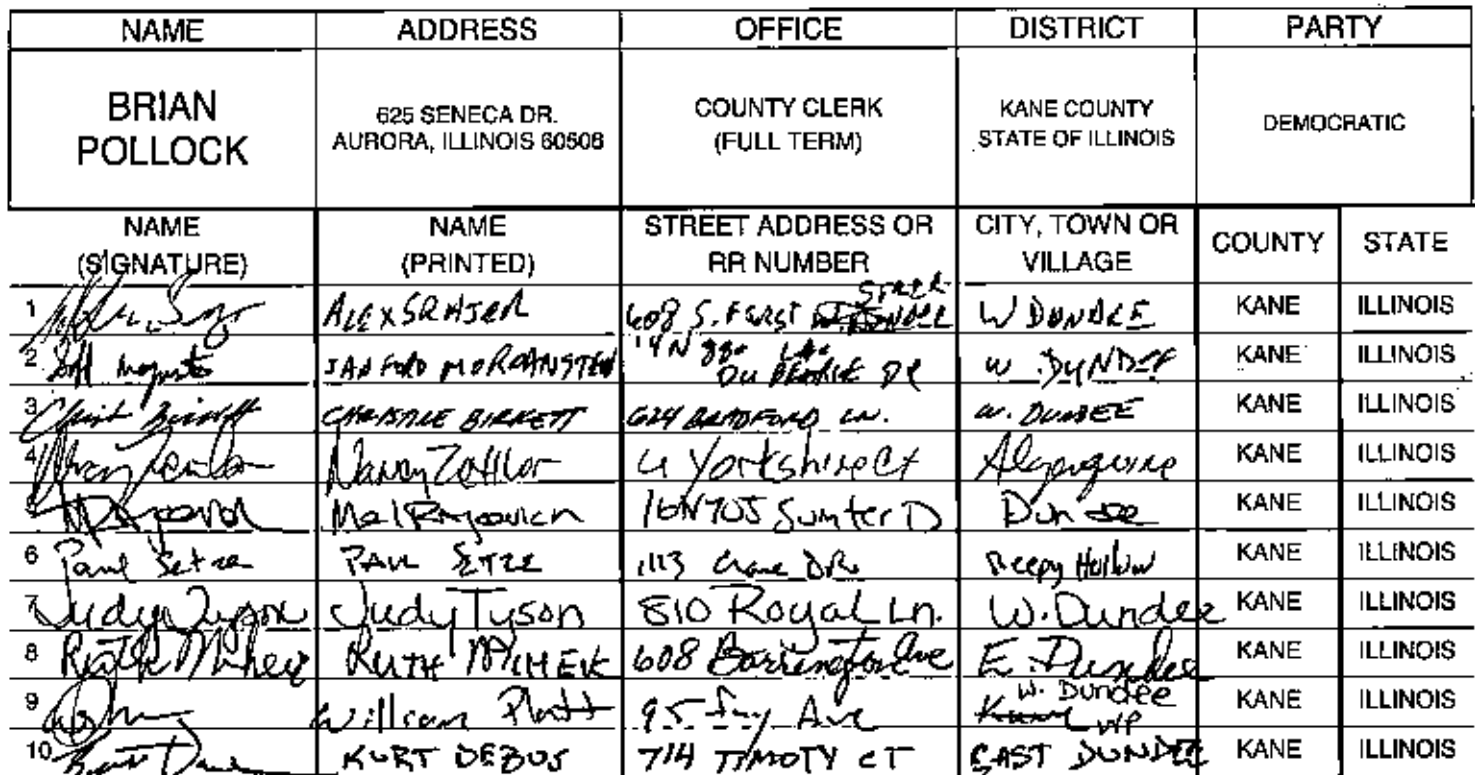 NAME ADDRESS OFFICE DISTRICT PARTY
BRIAN POLLOCK 625 SENECA DR. AURORA, ILLINOIS 60506 COUNTY CLERK (FULL TERM) KANE COUNTY STATE OF ILLINOIS DEMOCRATIC
NAME (SIGNATURE) NAME (PRINTED) STREET ADDRESS OR RR NUMBER CITY, TOWN OR VILLAGE COUNTY STATE
1 ALEX 608 S. FIRST W DUNDEE KANE ILLINOIS
2 SANFORD MORGANSTEIN W. DUNDEE KANE ILLINOIS
3 CHRISTINE BIRKETT 624 BRADFORD LN. W. DUNDEE KANE ILLINOIS
4 Nancy 4 Yorkshire Ct KANE ILLINOIS
5 Mel 16N705 Sumter D Dundee KANE ILLINOIS
6 Paul PAUL Crane DR. Sleepy Hollow KANE ILLINOIS
7 Judy Tyson Judy Tyson 810 Royal Ln. W. Dundee KANE ILLINOIS
8 Ruth RUTH 608 Barrington Ave E. Dundee KANE ILLINOIS
9 William Platt Ave W. Dundee KANE ILLINOIS
10 KURT DEBUS 714 TIMOTY CT EAST DUNDEE KANE ILLINOIS